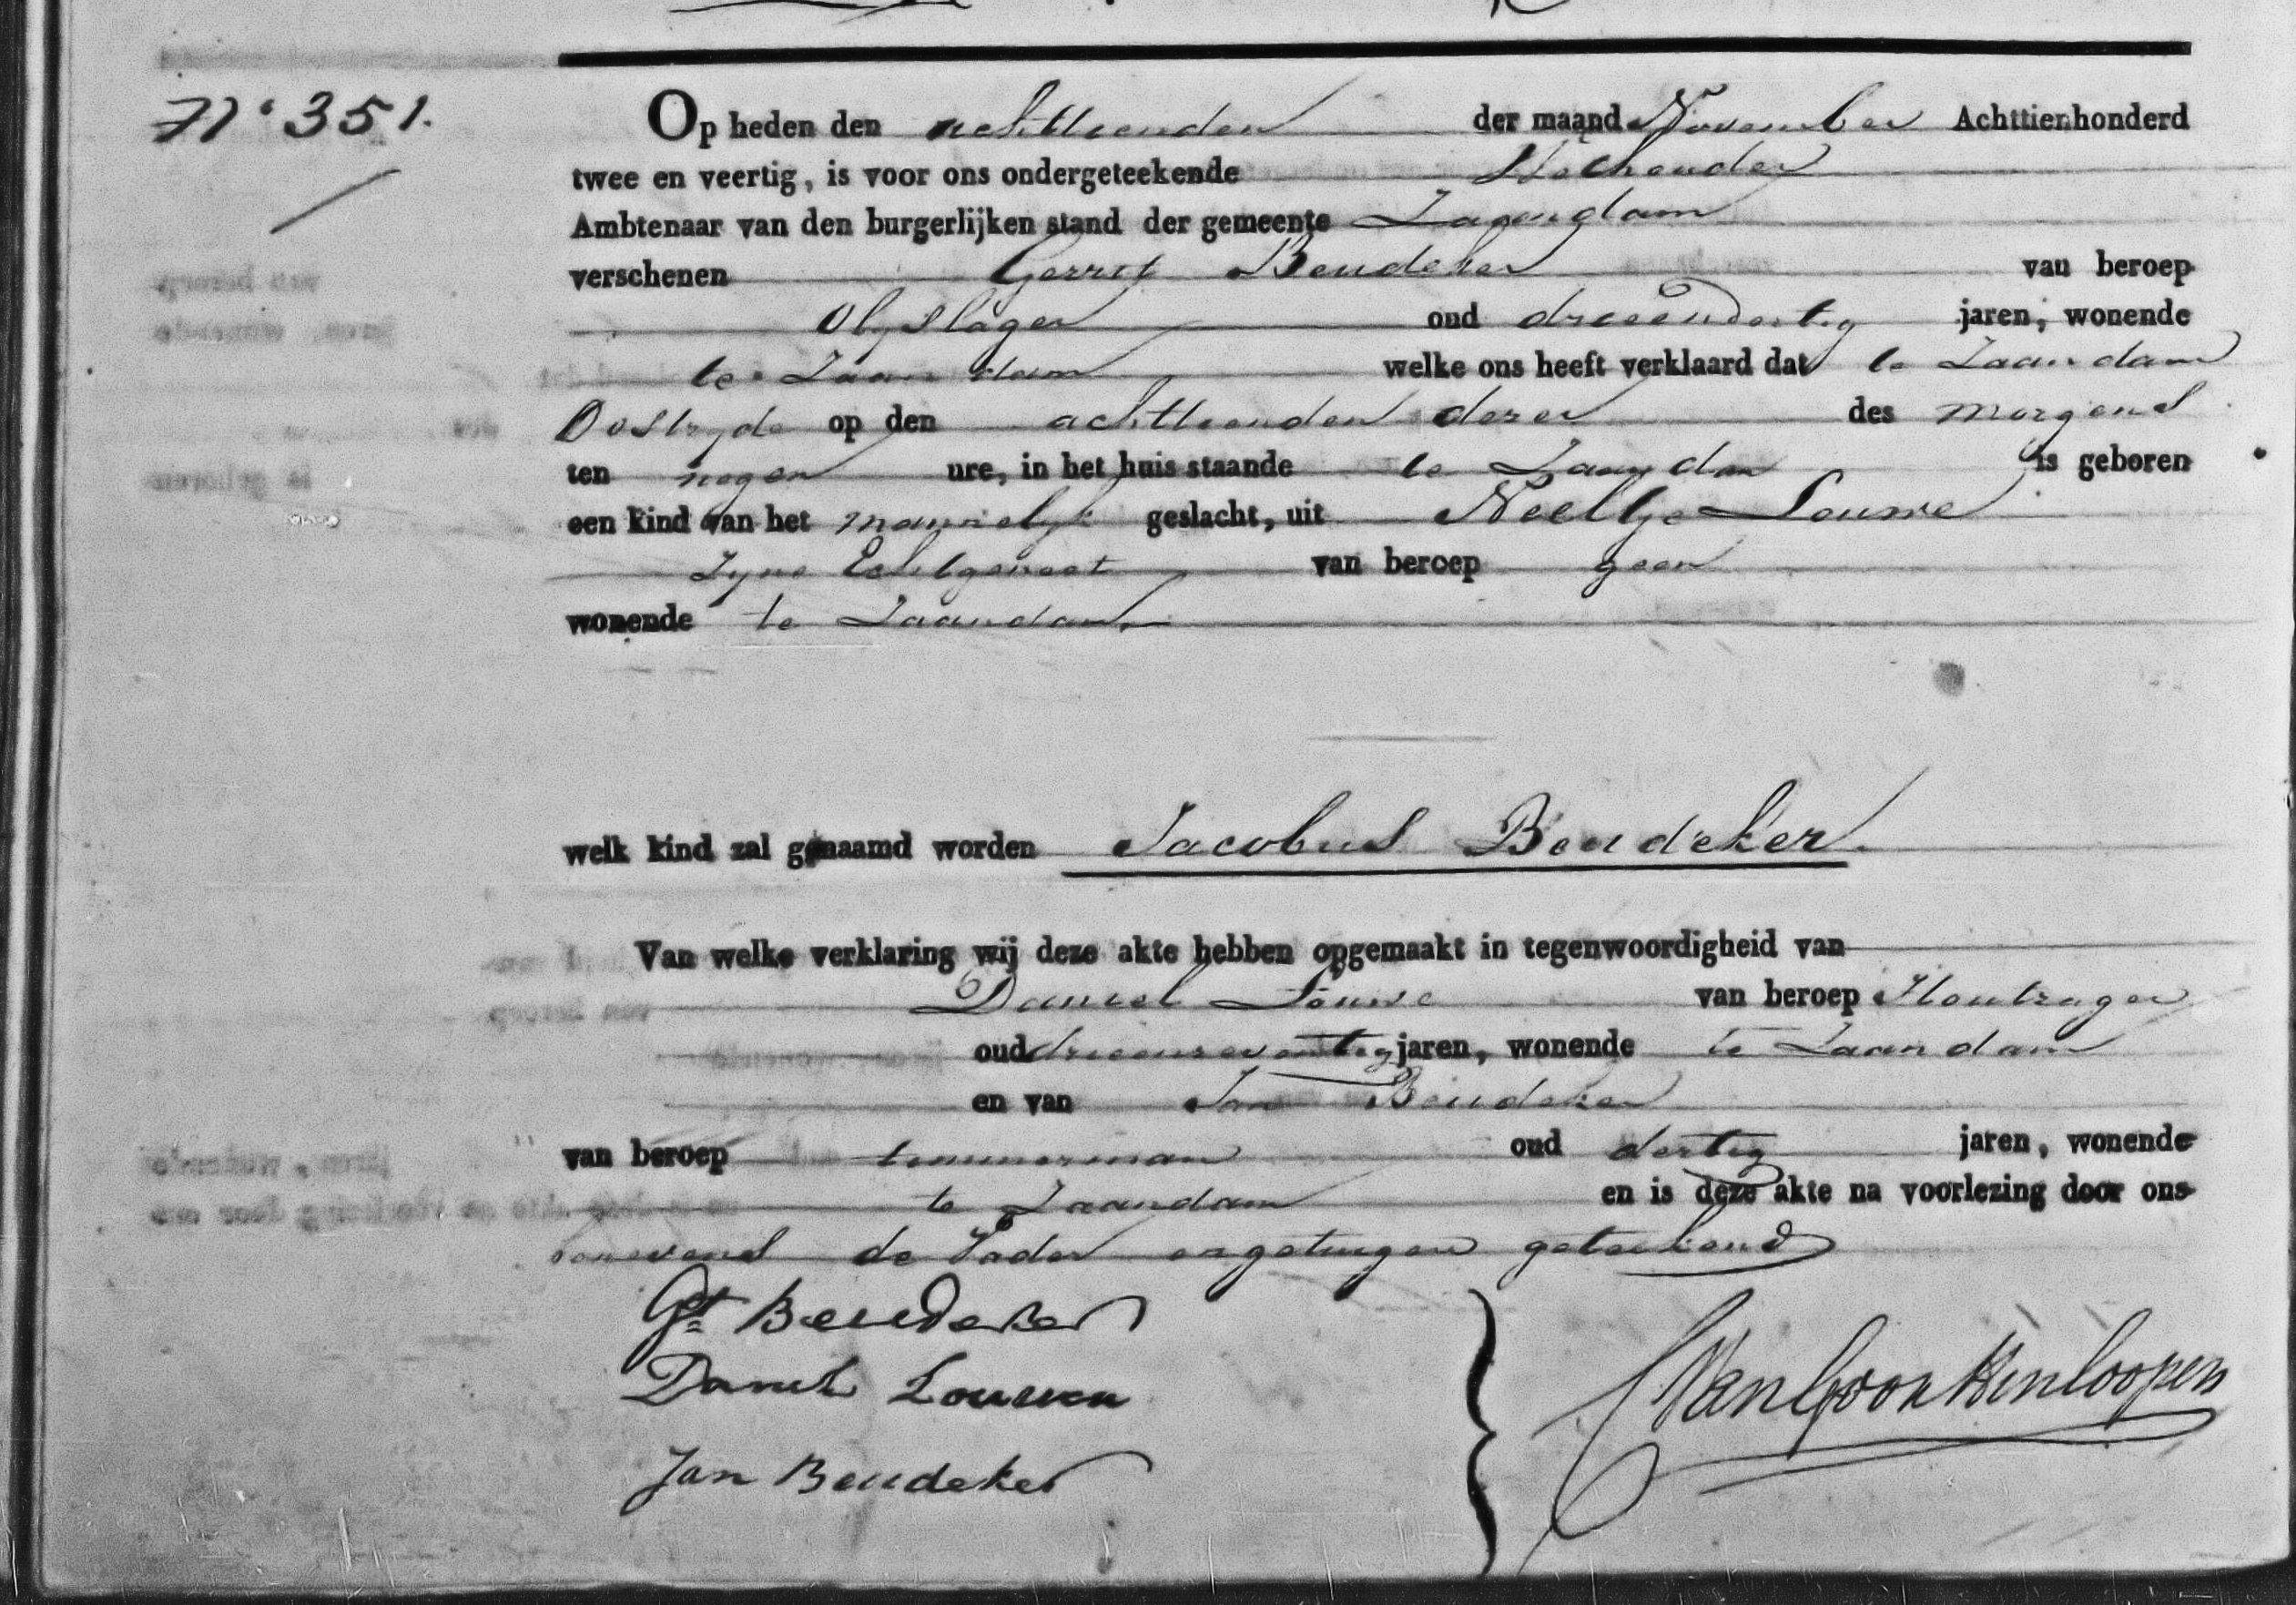 N° 351.
Op heden den achttienden der maand November Achttienhonderd
twee en veertig, is voor ons ondergeteekende Wethouder
Ambtenaar van den burgerlijken stand der gemeente Zaandam
verschenen Gerrit Beudeker van beroep
Olyslager oud drieendertig jaren, wonende
te Zaandam welke ons heeft verklaard dat te Zaandam
Oostzyde op den achttienden dezer des morgens
ten negen ure, in het huis staande te Zaandam is geboren
een kind van het mannelyk geslacht, uit Neeltje Louwe
Zyne Echtgenoot van beroep geen
wonende te Zaandam
welk kind zal genaamd worden Jacobus Beudeker.
Van welke verklaring wij deze akte hebben opgemaakt in tegenwoordigheid van
Daniel Louwe van beroep Houtzager
oud drieenzeventig jaren, wonende te Zaandam
en van Jan Beudeker
van beroep timmerman oud dertig jaren, wonende
te Zaandam en is deze akte na voorlezing door ons
benevens de Vader en getuigen geteekend
Gt Beudeker
Daniel Louwen
Jan Beudeker
van Goor Hinloopen